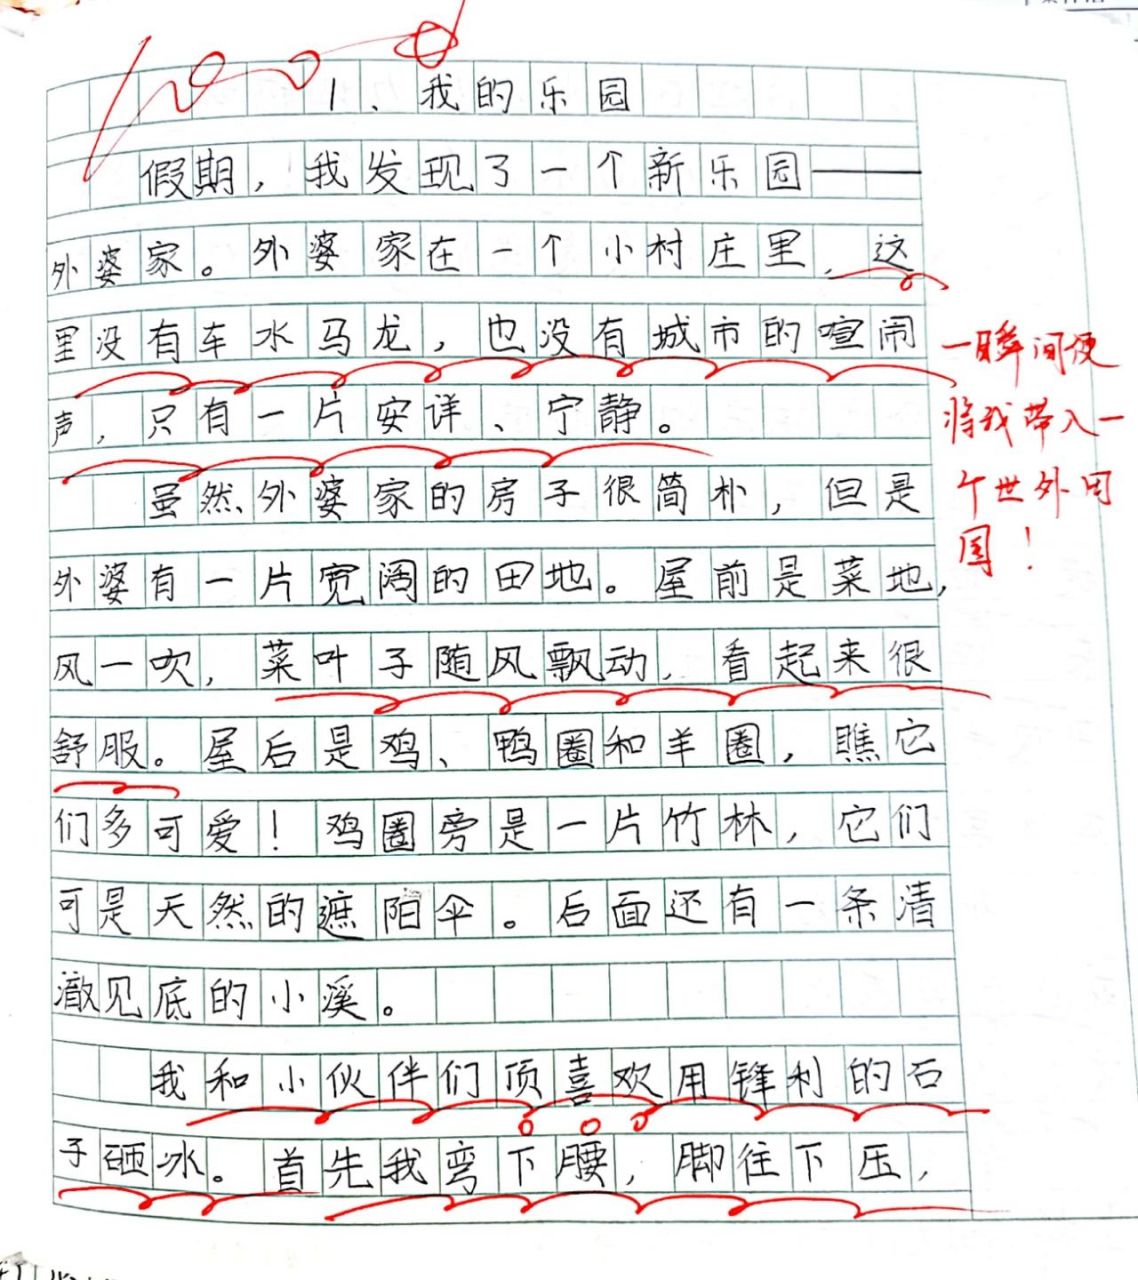 100
1、我的乐园
假期，我发现了一个新乐园——
外婆家。外婆家在一个小村庄里，这
里没有车水马龙，也没有城市的喧闹
声，只有一片安详、宁静。
一瞬间便
将我带入一
个世外田
园！
虽然外婆家的房子很简朴，但是
外婆有一片宽阔的田地。屋前是菜地，
风一吹，菜叶子随风飘动，看起来很
舒服。屋后是鸡、鸭圈和羊圈，瞧它
们多可爱！鸡圈旁是一片竹林，它们
可是天然的遮阳伞。后面还有一条清
澈见底的小溪。
我和小伙伴们顶喜欢用锋利的石
子砸冰。首先我弯下腰，脚往下压，